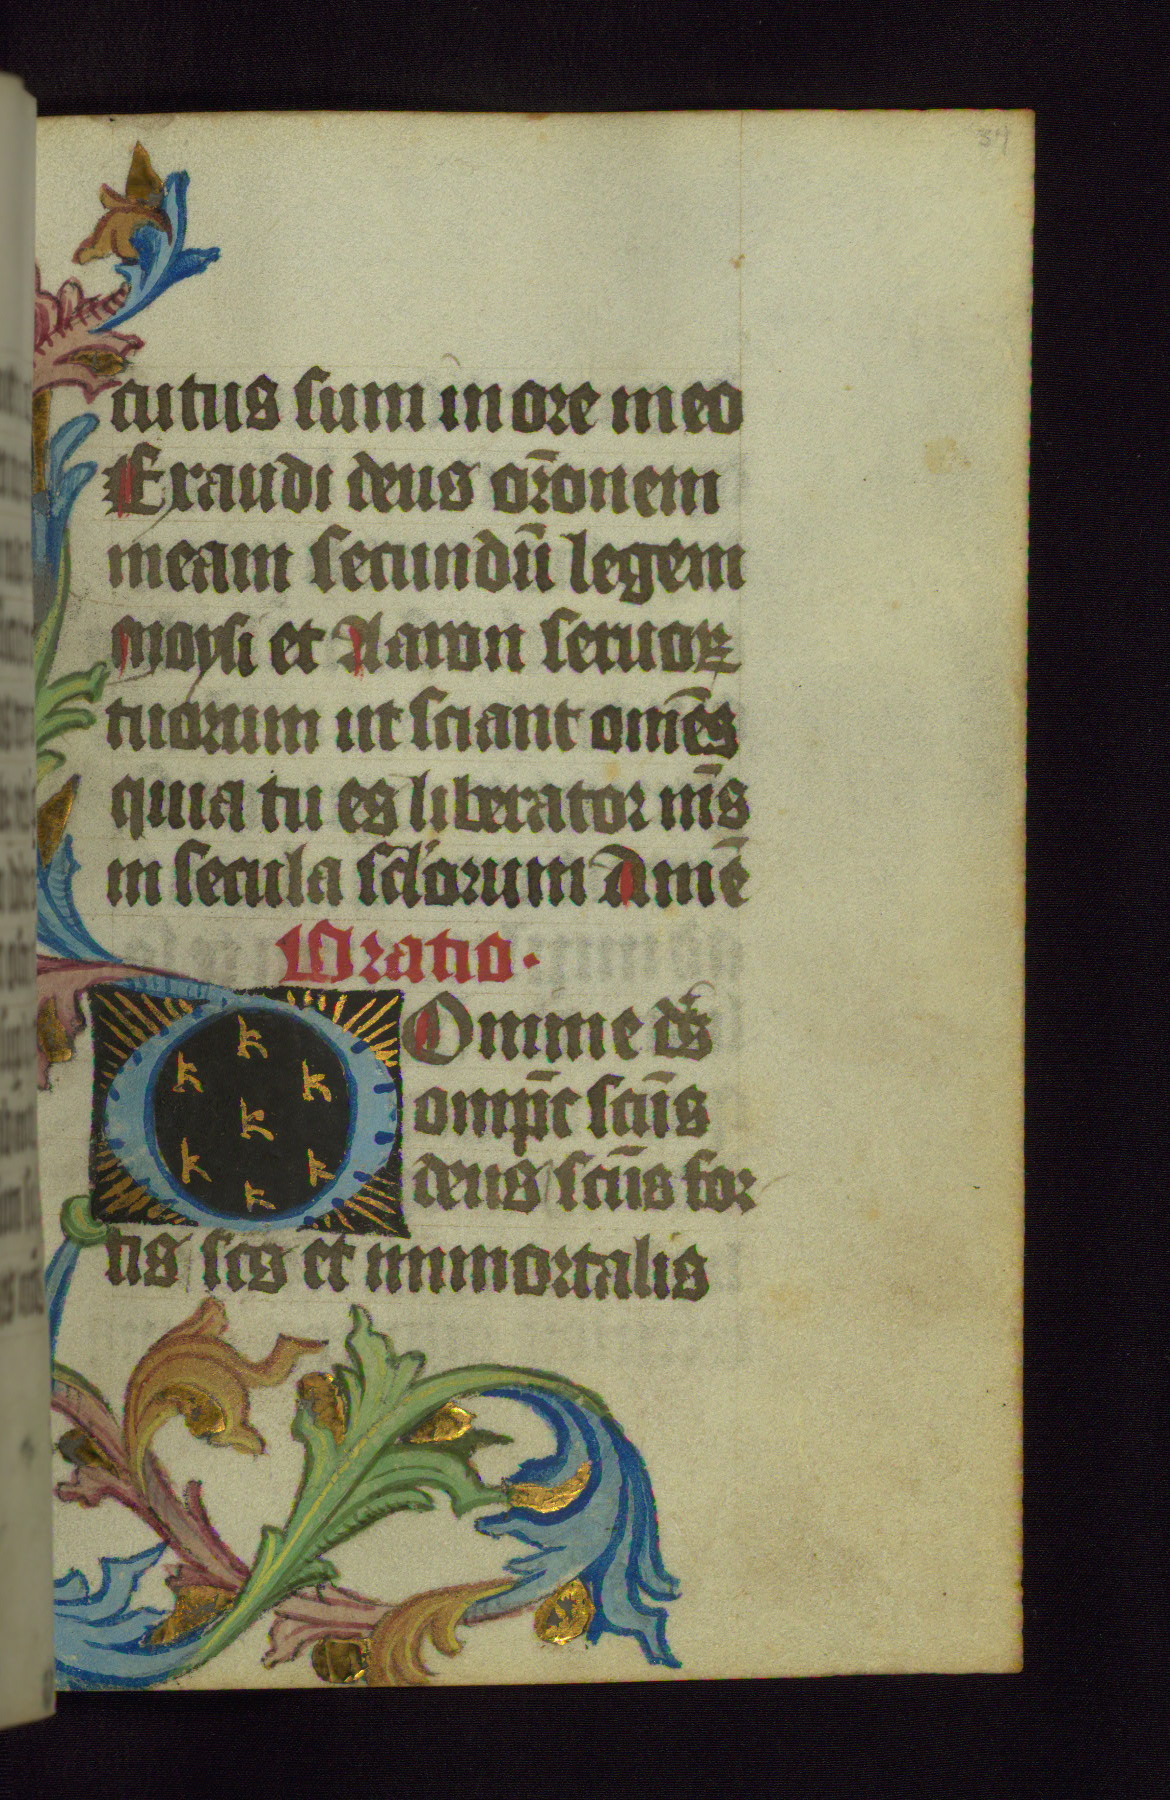 34
cutus sum in ore meo
Exaudi deus or̄onem
meam secundū legem
moysi et Aaron seruoꝝ
tuorum ut sciant om̄es
quia tu es liberator nr̄s
in secula sc̄lorum Amē
Oratio.
DOmine ds̄
omp̄t sctūs
deus sctūs for
tis scs et immortalis